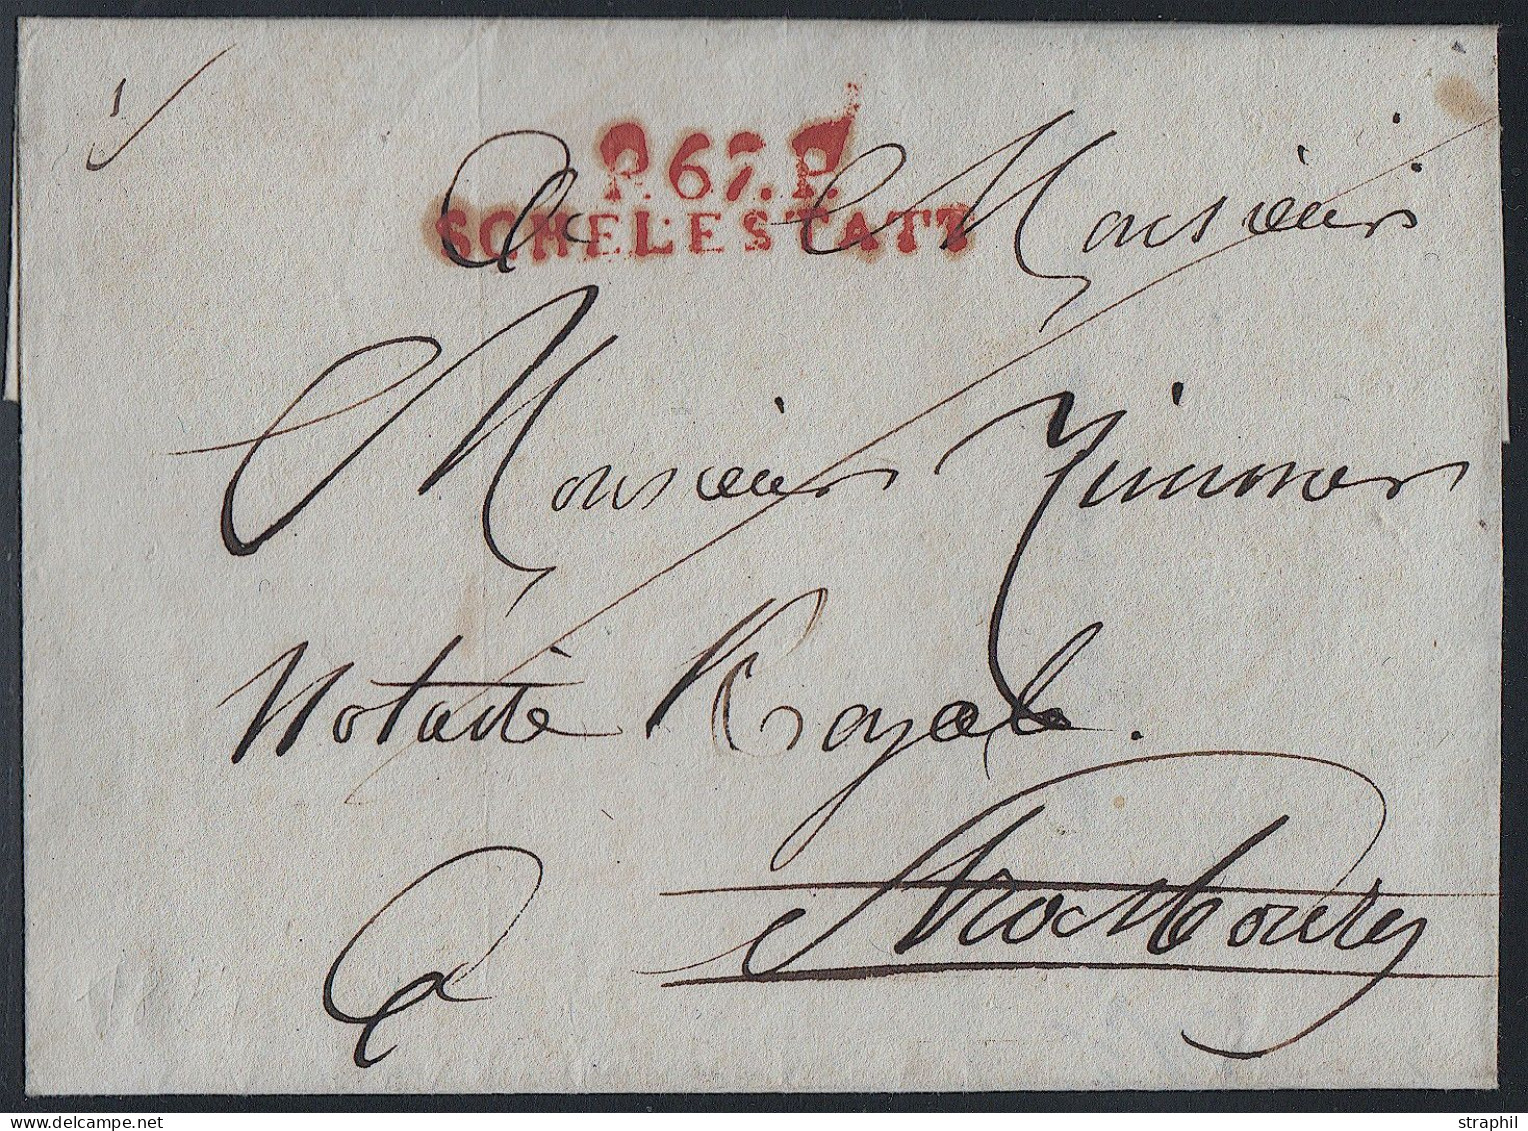 P.67.P.
SCHELESTATT
A Monsieur
Monsieur Zimmer
Notaire Royale.
à Strasbourg
STRAPHIL